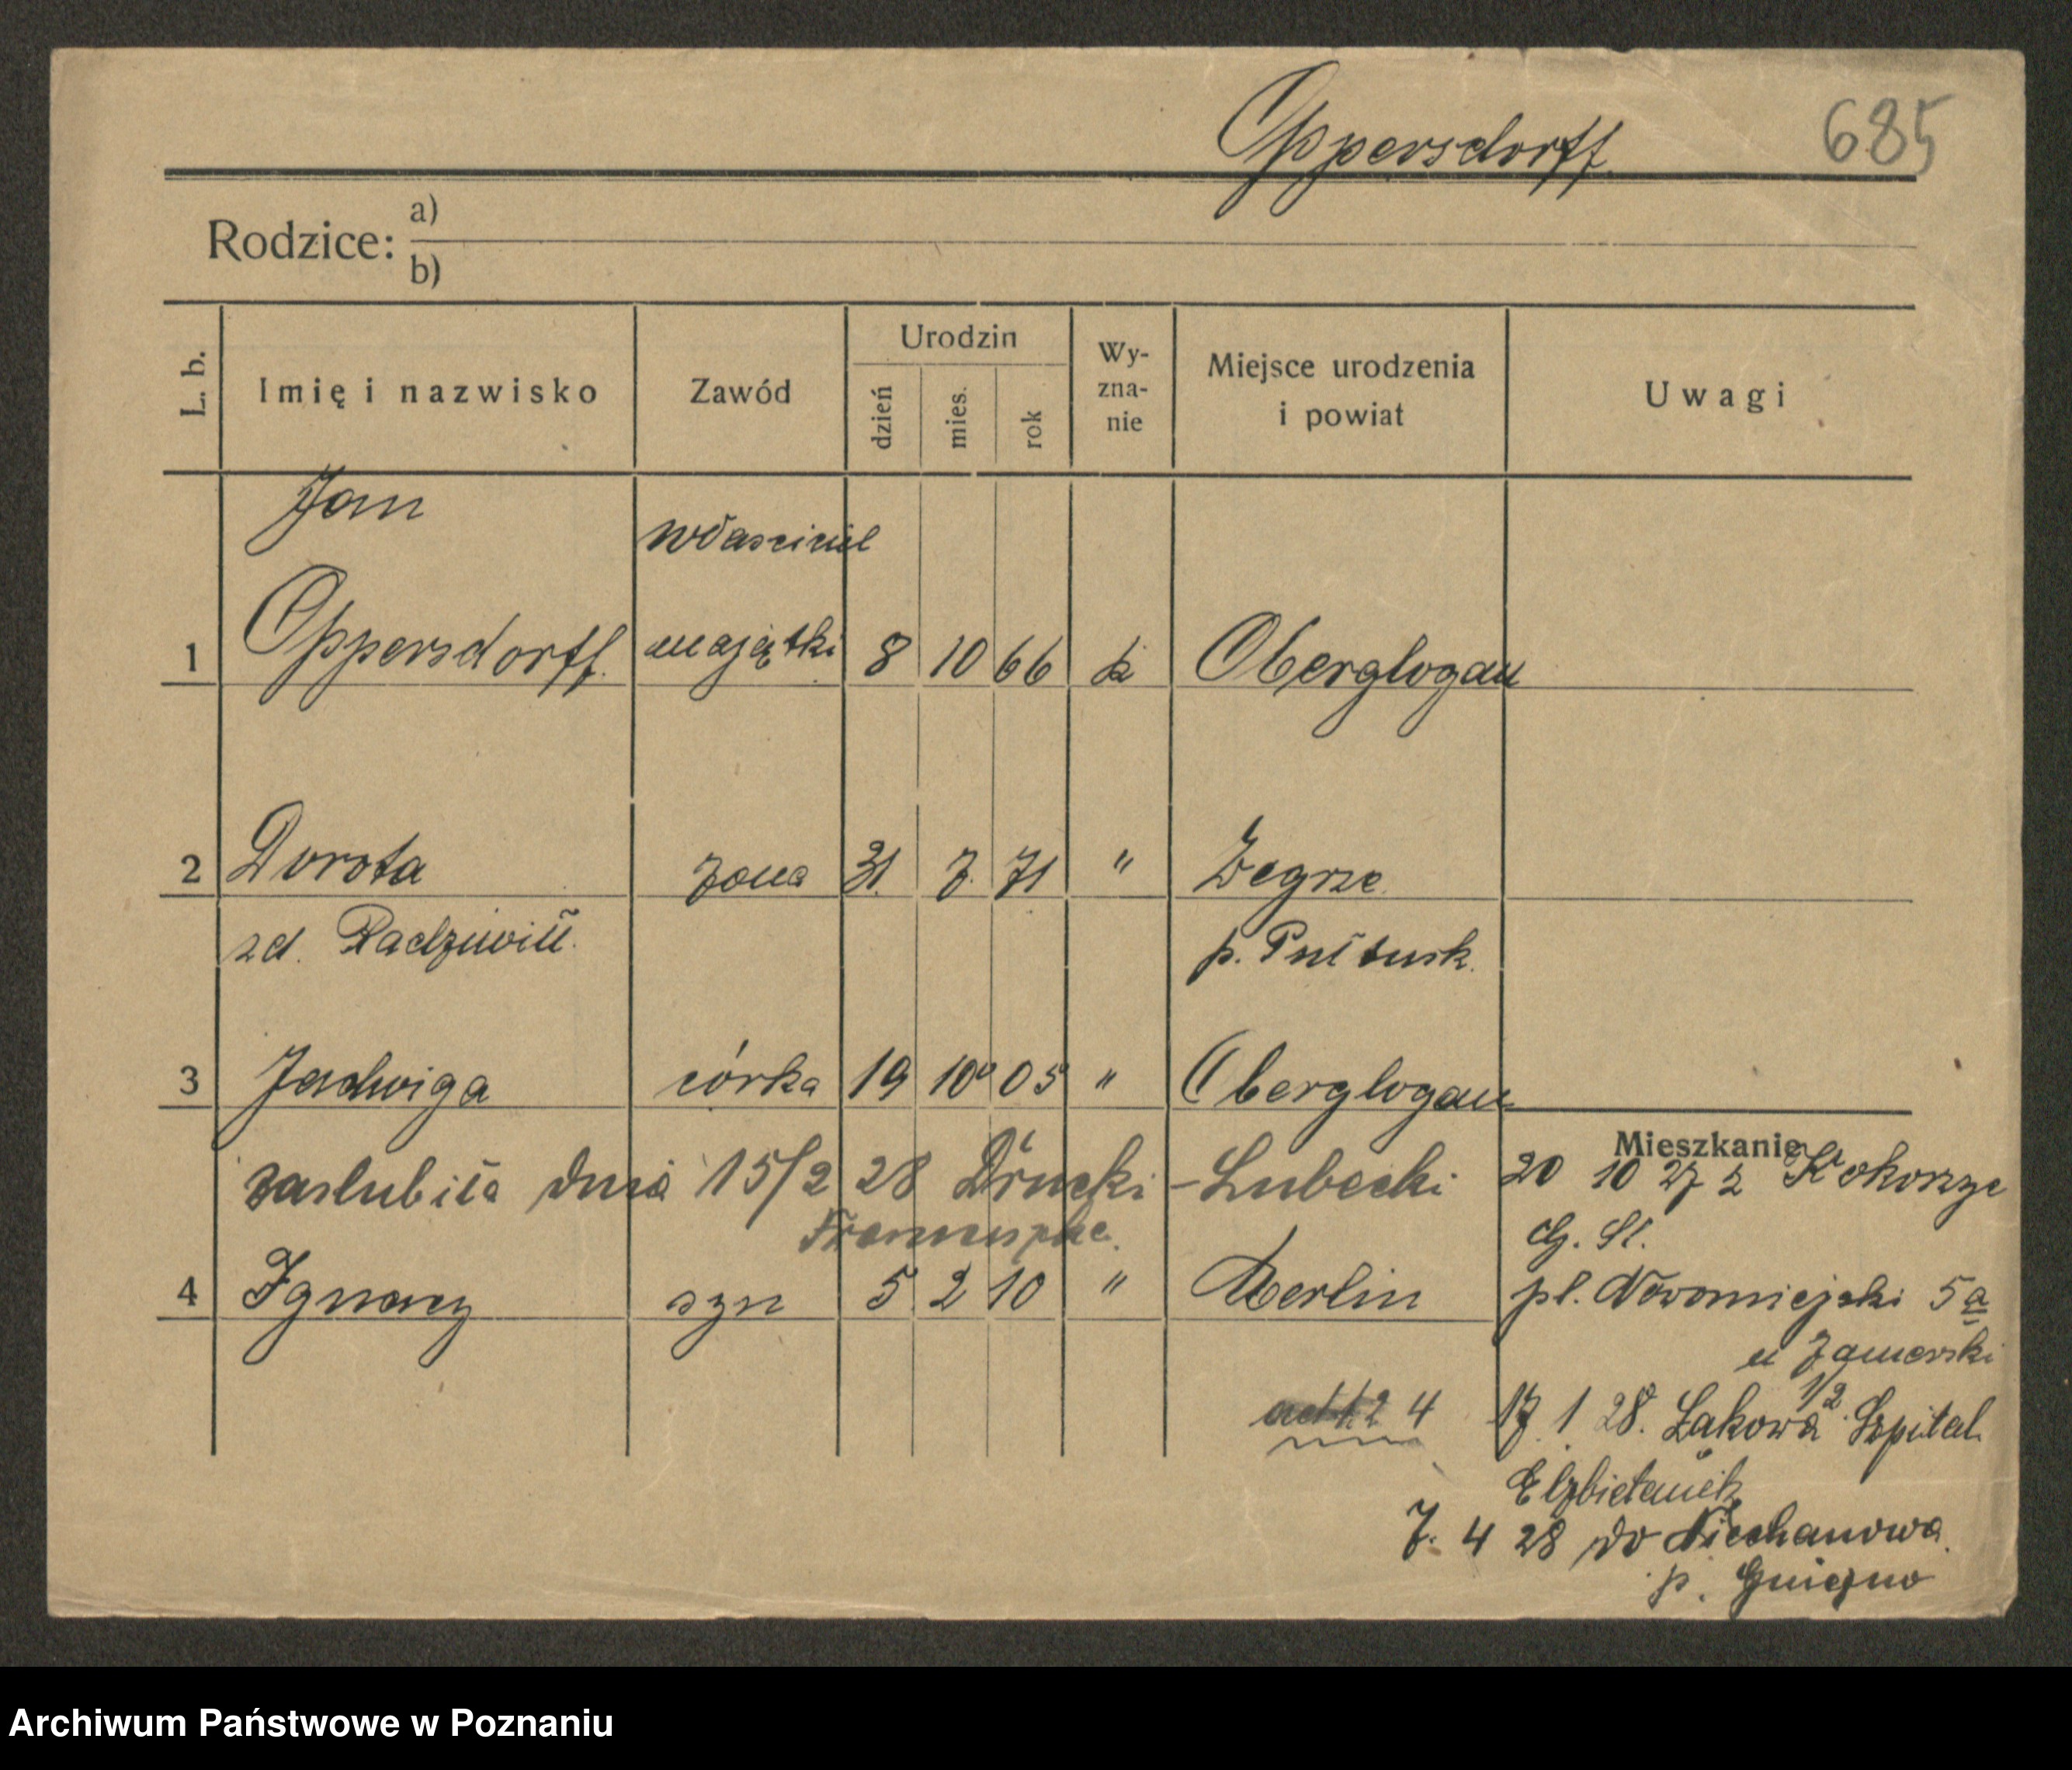 Oppersdorff
685
Rodzice: a)
b)
L. b. Imię i nazwisko Zawód Urodzin dzień mies. rok Wy-zna-nie Miejsce urodzenia i powiat Uwagi
Jan
właściciel
1 Oppersdorff majątki 8 10 66 k Oberglogau
2 Dorota żona 31. 7. 71 " Zegrze
zd. Radziwiłł p. Pułtusk.
3 Jadwiga córka 19 10 05 " Oberglogau
Mieszkanie
zaslubiła dnia 15/2 28 Drucki-Lubecki
20 10 27 z Kokorzyc
G. Sl.
4 Ignacy syn 5 2 10 " Berlin
pl. Nowomiejski 5a
u Żamerski
4
17. 1 28. Łakowa 1/2 Szpital
Elżbietanek
7. 4 28 do Niechanowa
p. Gniezno
Archiwum Państwowe w Poznaniu